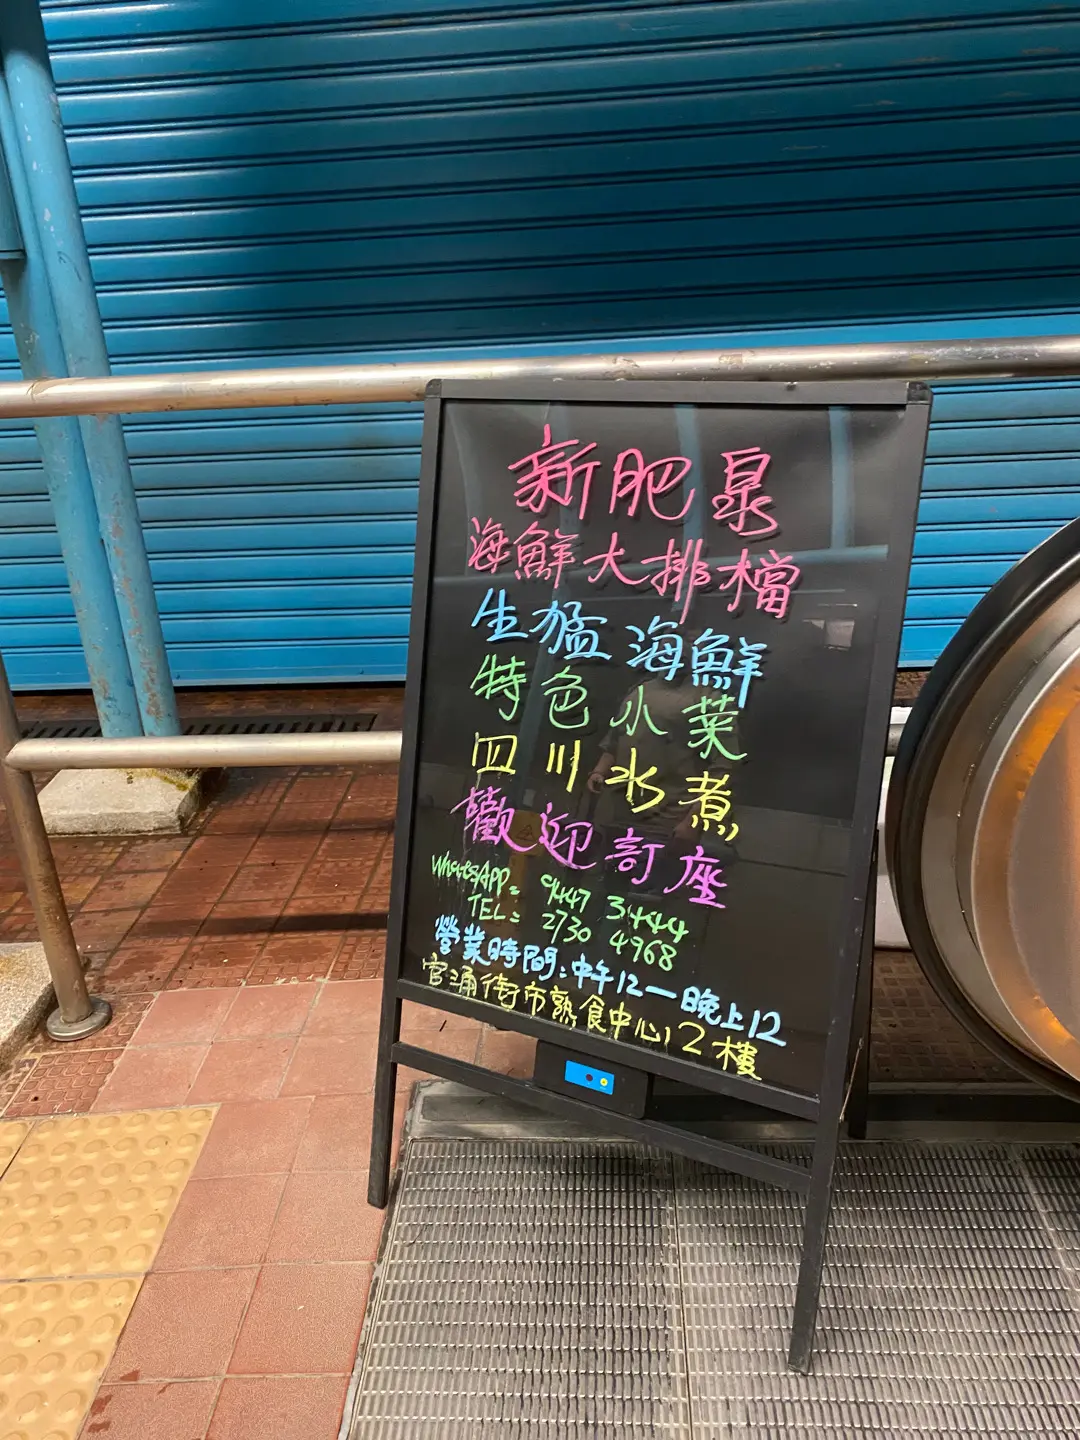 新肥泉
海鮮大排檔
生猛海鮮
特色小菜
四川水煮
歡迎訂座
WhatsAPP: 9447 3444
TEL: 2730 4968
營業時間:中午12—晚上12
官涌街市熟食中心2樓